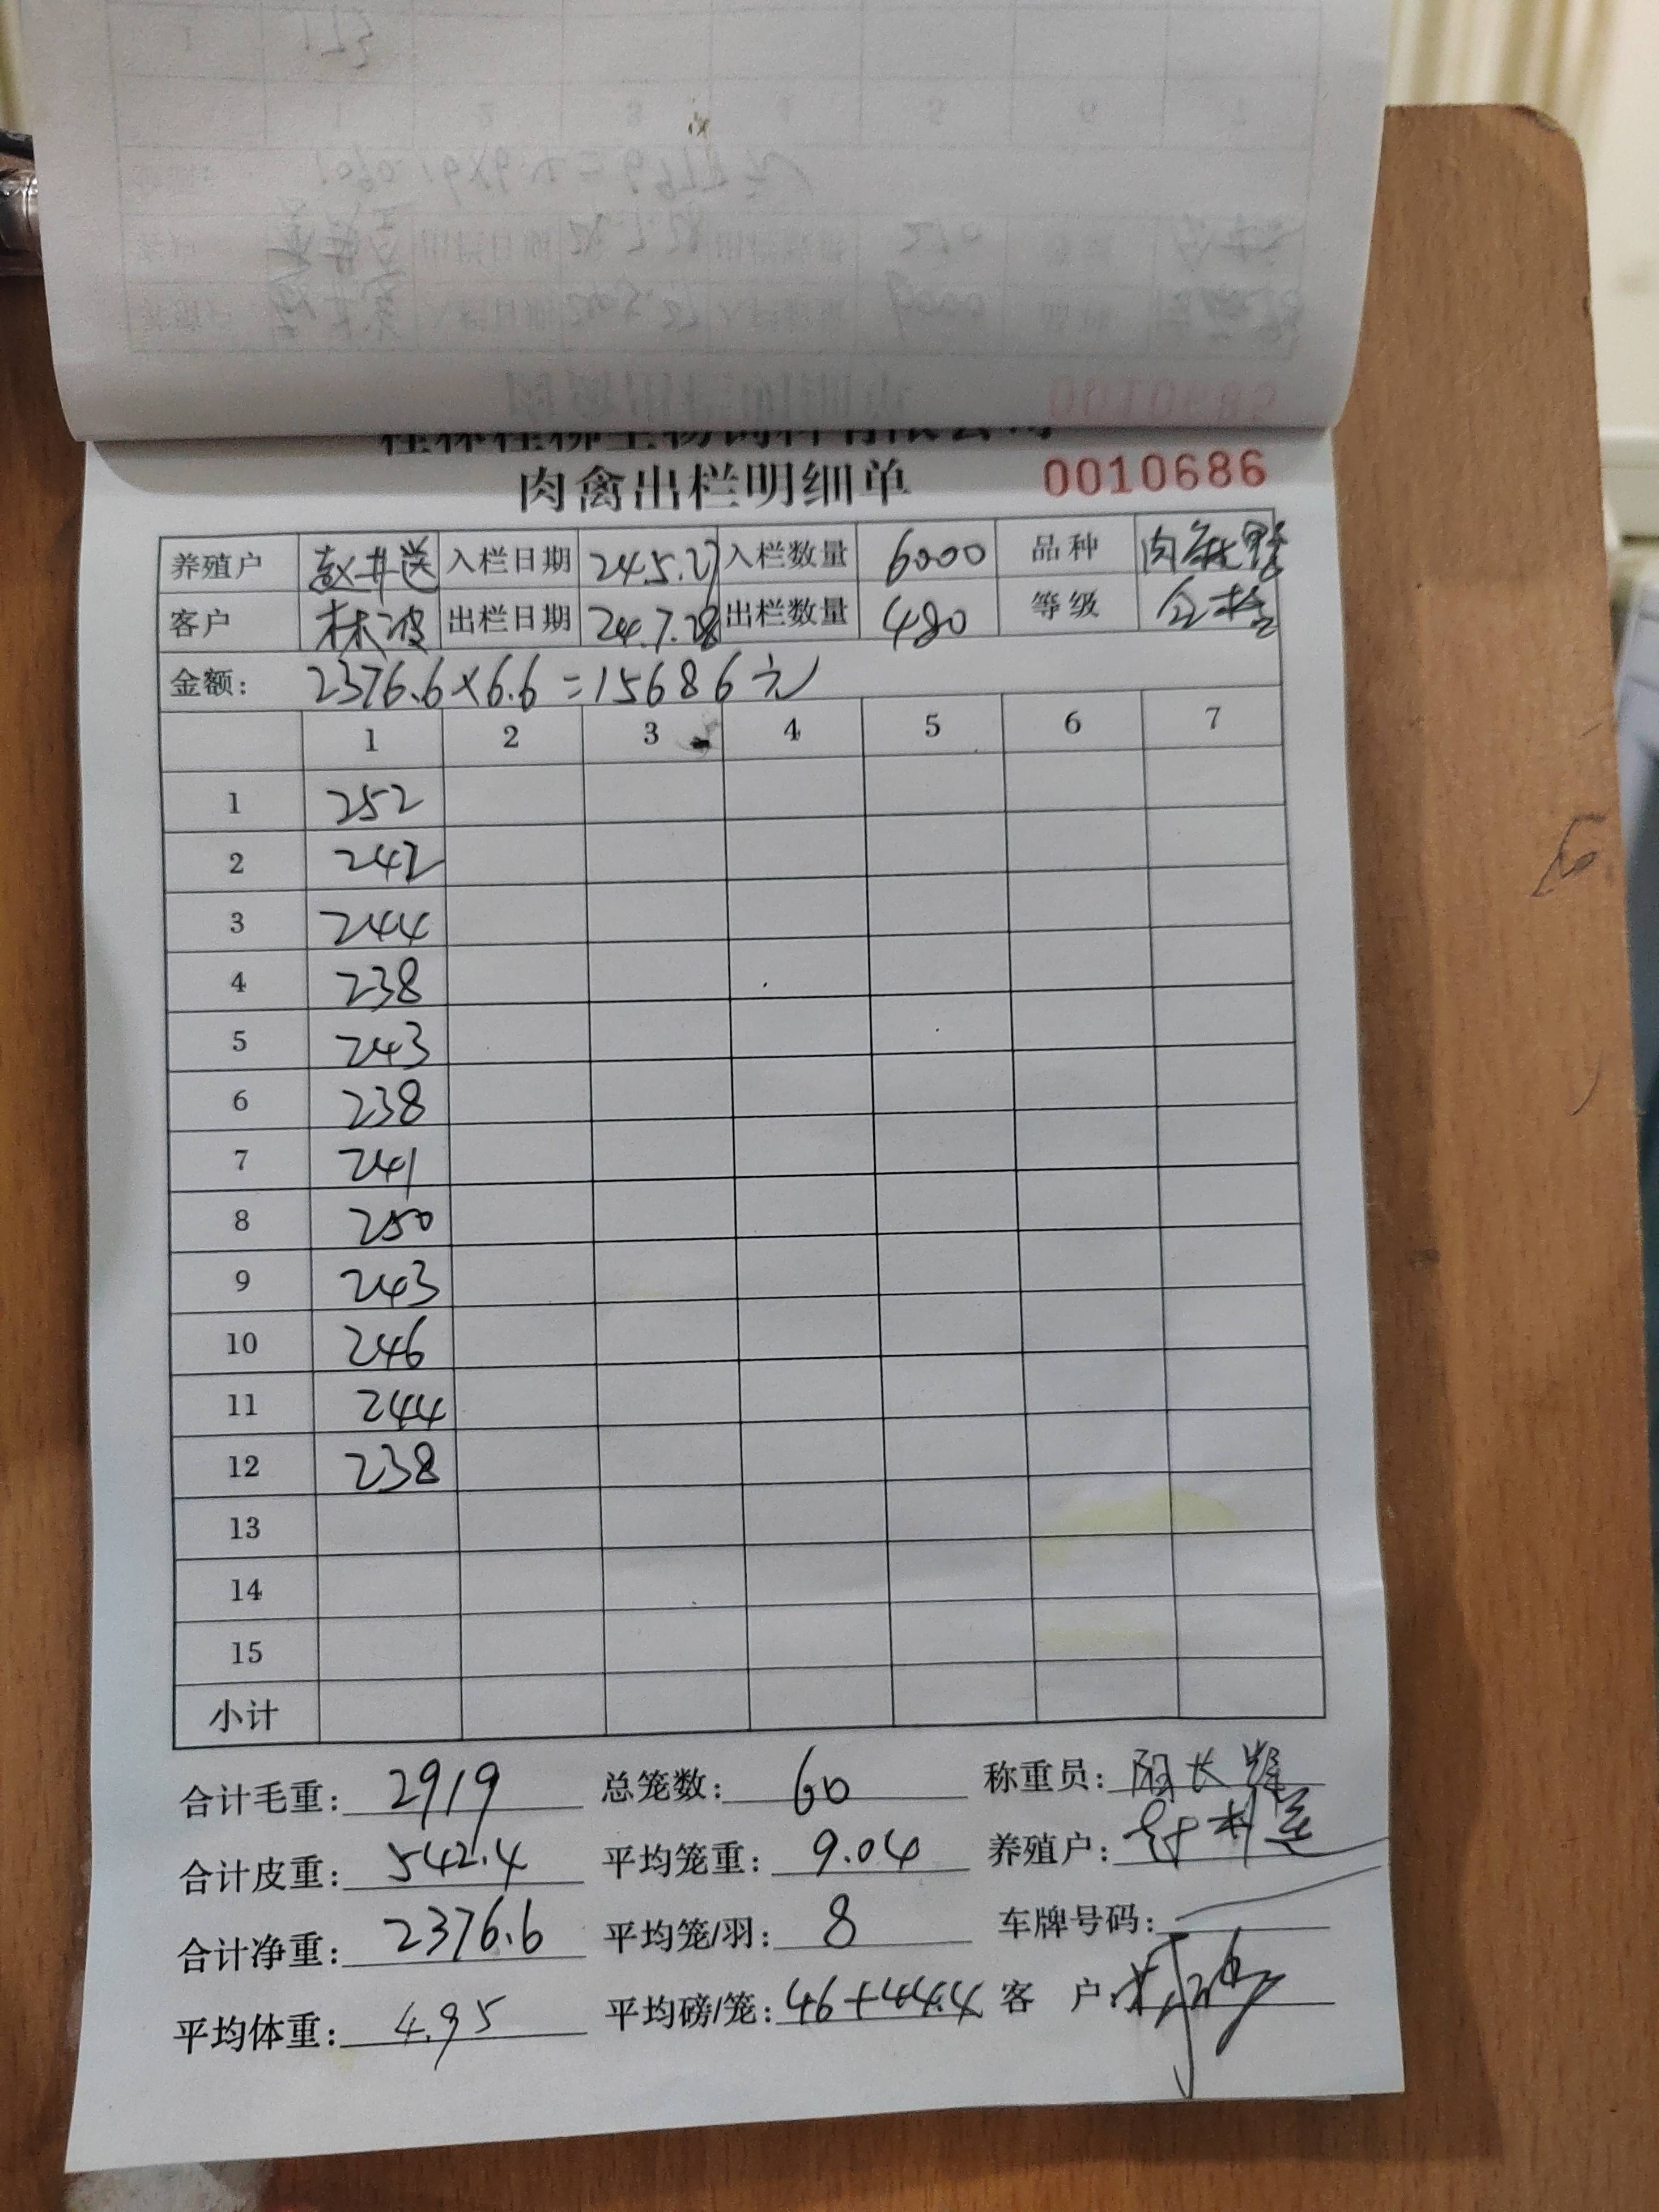 肉禽出栏明细单 0010686
养殖户 入栏日期 24.5.27 入栏数量 6000 品种
客户 林波 出栏日期 24.7.28 出栏数量 480 等级
金额: 2376.6×6.6=15686元
1 2 3 4 5 6 7
1 252
2 242
3 244
4 238
5 243
6 238
7 241
8 250
9 243
10 246
11 244
12 238
13
14
15
小计
合计毛重: 2919 总笼数: 60 称重员:
合计皮重: 542.4 平均笼重: 9.04 养殖户:
合计净重: 2376.6 平均笼/羽: 8 车牌号码:
平均体重: 4.95 平均磅/笼: 客户: